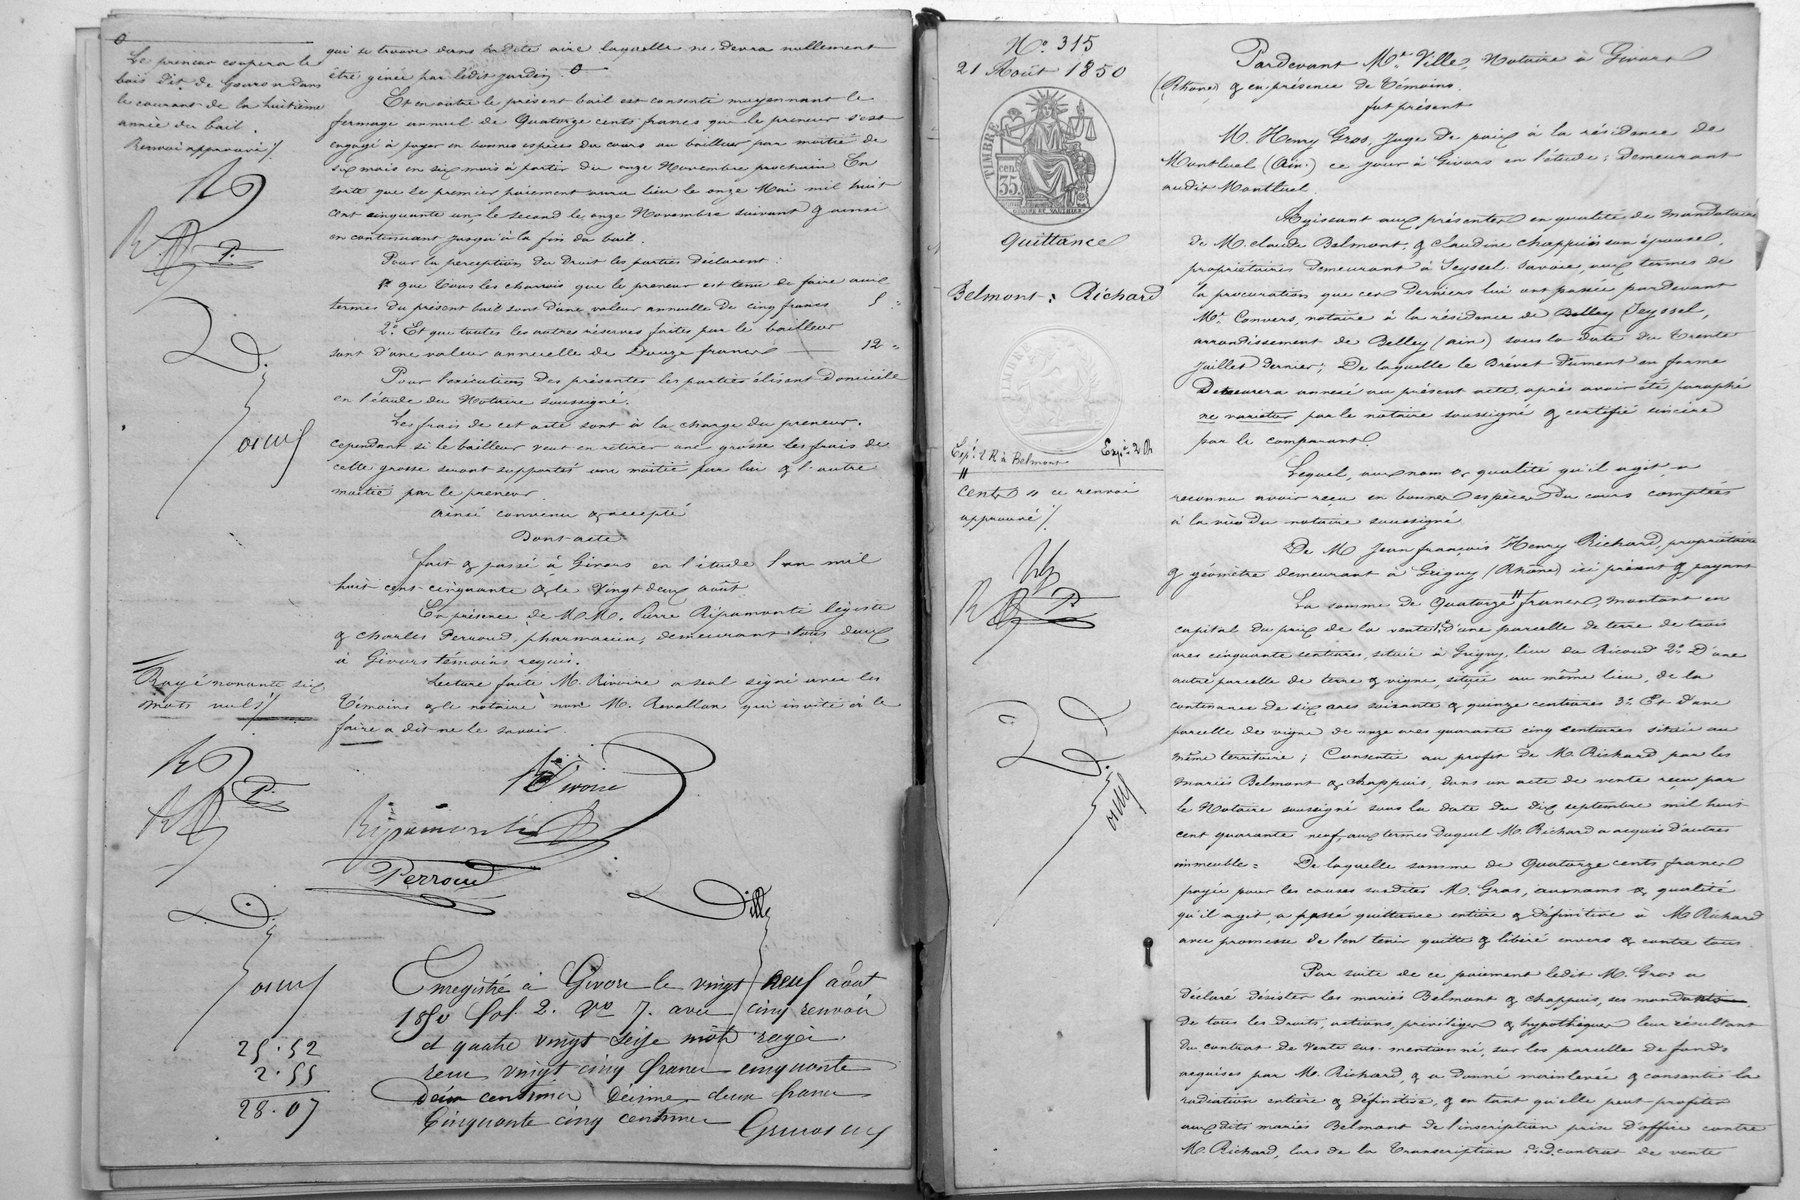 Le preneur coupera le
bois dit de Garon dans
le courant de la huitième
année du bail.
Renvoi approuvé
qui se trouve dans la dite aire laquelle ne devra nullement
être gênée par ledit jardin.
Et en outre le présent bail est consenti moyennant le
fermage annuel de Quatorze cents francs que le preneur s'est
engagé à payer en bonnes espèces du cours au bailleur par moitié de
six mois en six mois à partir du onze Novembre prochain En
sorte que le premier paiement aura lieu le onze Mai mil huit
cent cinquante un, le second le onze Novembre suivant & ainsi
en continuant jusqu'à la fin du bail.
Pour la perception du Droit les parties Déclarent :
1º que tous les charrois que le preneur est tenu de faire aux
termes du présent bail sont d'une valeur annuelle de cinq francs 5 "
2º Et que toutes les autres réserves faites par le bailleur
sont d'une valeur annuelle de Douze francs 12 "
Pour l'exécution Des présentes les parties élisent Domicile
en l'étude du Notaire soussigné.
Les frais de cet acte sont à la charge du preneur.
cependant si le bailleur veut en retirer une grosse les frais de
cette grosse seront supportés une moitié par lui & l'autre
moitié par le preneur.
Ainsi convenu & accepté
Dont acte
Fait & passé à Givors en l'étude l'an mil
huit cent cinquante & le Vingt deux août
En présence de M.M. Pierre Ripamonti légiste
& Charles Perroud, pharmacien, demeurant tous deux
à Givors témoins requis.
Lecture faite M. Rivoire a seul signé avec les
témoins & le notaire non M. Revollon qui invité à le
faire a dit ne le savoir.
Rayé nonante six
mots nuls
Rivoire
Ripamonti
Perroud
Ville
Enregistré à Givors le vingt neuf août
1850 fol. 2. Vo 7. avec cinq renvois
et quatre vingt seize mots rayés
reçu vingt cinq francs cinquante
deux centimes Décime deux francs
Cinquante cinq centimes
25.52
2.55
28.07
Nº 315
21 Août 1850
TIMBRE
35
Quittance
Belmont : Richard
TIMBRE
Expé. 2 R à Belmont
Expé. 2 R
cents " ce renvoi
approuvé
Pardevant Me. Ville, Notaire à Givors
(Rhône) & en présence de Témoins.
fut présent
M. Henry Gros, Juge de paix à la résidence de
Montluel (Ain) ce jour à Givors en l'étude ; demeurant
audit Montluel.
Agissant aux présentes en qualité de mandataire
de M. Claude Belmont, & Claudine Chappuis son épouse,
propriétaires demeurant à Seyssel Savoie, aux termes de
la procuration que ces Derniers lui ont passée pardevant
Me. Convers, notaire à la résidence de Belley Seyssel,
arrondissement de Belley (Ain) sous la date du trente
Juillet Dernier ; De laquelle le Brevet dûment en forme
Demeurera annexé au présent acte, après avoir été paraphé
ne varietur par le notaire soussigné & certifié sincère
par le comparant.
Lequel, aux nom & qualité qu'il agit, a
reconnu avoir reçu en bonnes espèces du cours comptées
à la vue du notaire soussigné
De M. Jean françois Henry Richard, propriétaire
& géomètre demeurant à Grigny (Rhône) ici présent & payant
La somme de Quatorze " francs, montant en
capital du prix de la vente 1º d'une parcelle de terre de trois
ares cinquante centiares, située à Grigny, lieu du Ricoud 2º D'une
autre parcelle de terre & vigne, située au même lieu, de la
contenance de six ares soixante & quinze centiares 3º Et d'une
parcelle de vigne de onze ares quarante cinq centiares située au
même territoire ; Consentie au profit de M. Richard par les
mariés Belmont & Chappuis, dans un acte de vente reçu par
le Notaire soussigné sous la date du dix septembre mil huit
cent quarante neuf, aux termes duquel M. Richard a acquis d'autres
immeubles De laquelle somme de Quatorze cents francs
payée pour les causes susdites M. Gros, aux noms & qualité
qu'il agit, a passé quittance entière & définitive à M. Richard
avec promesse de l'en tenir quitte & libéré envers & contre tous
Par suite de ce paiement ledit M. Gros a
déclaré désister les mariés Belmont & Chappuis, ses mandants
De tous les Droits, actions, privilèges & hypothèques leur résultant
du contrat de vente sus-mentionné, sur les parcelles de fonds
acquises par M. Richard, & a donné mainlevée & consenti à la
radiation entière & définitive, & en tant qu'elle peut profiter
auxdits mariés Belmont de l'inscription prise d'office contre
M. Richard, lors de la Transcription dud. contrat de vente